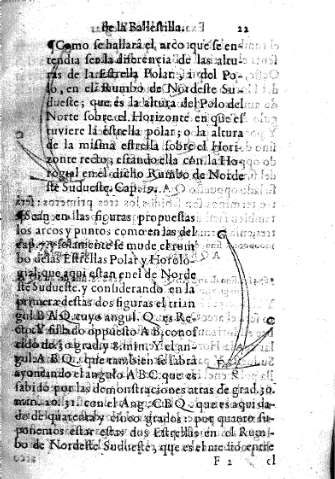 de la Ballestilla. 22
¶Como se hallará el arco que se en-
tendia ser la diferencia de las altu-
ras de la Estrella Polar, i del Po-
lo, en el Rumbo de Nordeste Su-
dueste; que es la altura del Polo del
Norte sobre el Horizonte en que es
tuviere la estrella polar; o la altura
de la misma estrella sobre el Hori-
zonte recto; estando ella con la Ho-
rologial en el dicho Rumbo de Norde
ste Sudueste. Cap. 19.
¶Sean en las figuras propuestas
los arcos y puntos como en las del
cap. y solamente se mude el rum
bo de las Estrellas Polar y Horolo-
gial que aqui estan en el de Norde
ste Sudueste. y considerando en la
primera destas dos figuras el trian
gul. BAQ. cuyo angul. Q. es Re-
cto. Y su lado oppuesto AB. cono
cido de 3. grad. y 8. min. Y el an-
gul. ABQ. que tambien se sabrá
ayuntando el angulo ABC. que es
sabido por las demonstraciones atras de grad. 30.
min. 10. 31. con el Ang. CBQ. que es aqui sa-
do de quarenta y cinco grados: por quanto su-
ponemos estar estas dos Estrellas en el Rum-
bo de Nordeste Sudueste, que es el medio entre
F 2 el